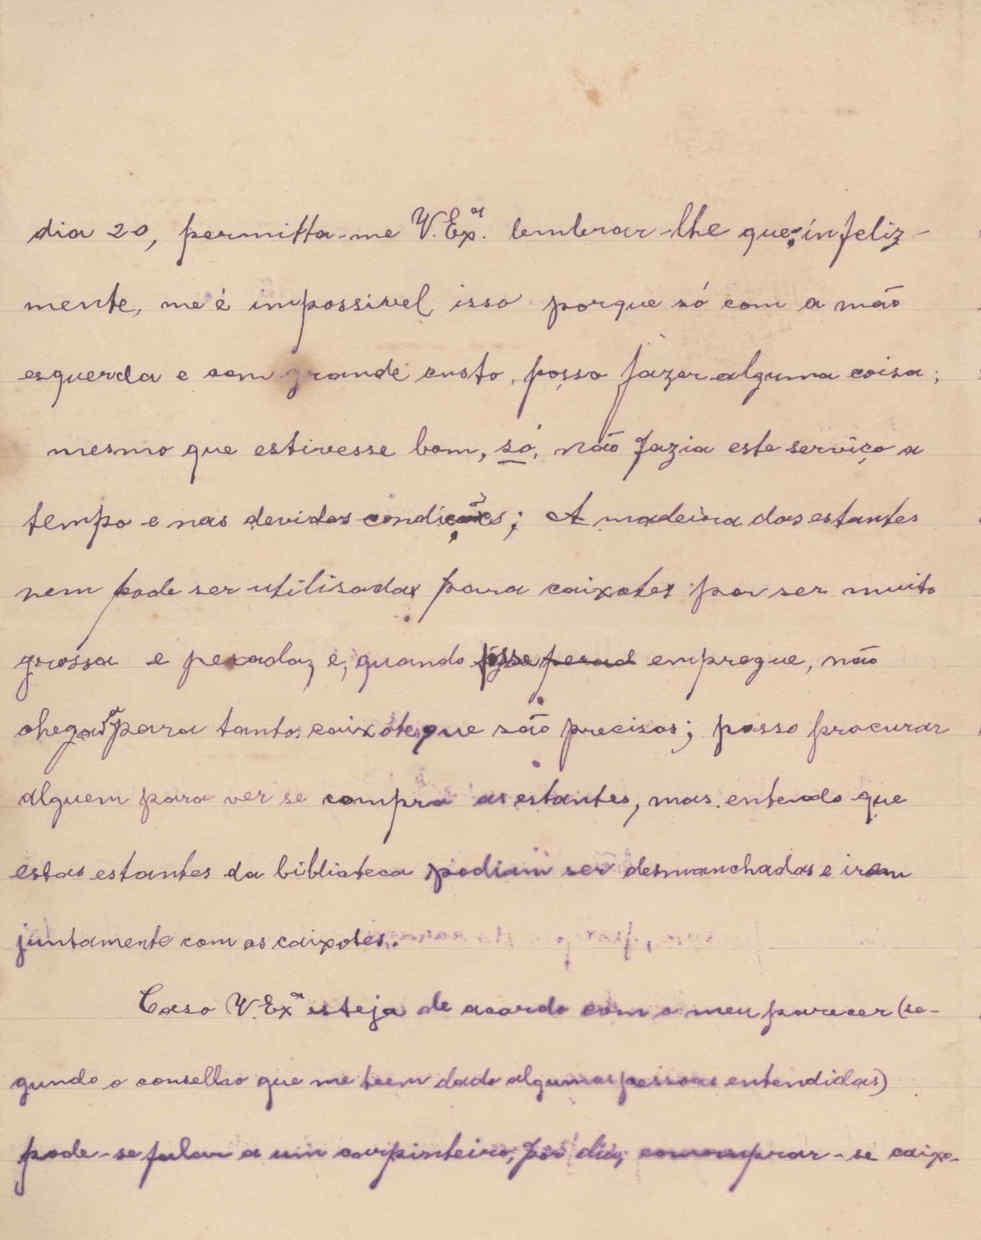 dia 20, permitta-me V. Exª. lembrar-lhe que, infeliz-
mente, me é impossivel isso porque só com a mão
esquerda e com grande custo, posso fazer alguma coisa;
mesmo que estivesse bom, só, não fazia este serviço a
tempo e nas devidas condições; A madeira das estantes
nem pode ser utilisada para caixotes por ser muito
grossa e pesada, e, quando fosse empregue, não
chegava para tantos caixotes que são precisos; posso procurar
alguem para ver se compra as estantes, mas entendo que
estas estantes da biblioteca podiam ser desmanchadas e irem
juntamente com os caixotes.
Caso V. Exª esteja de acordo com o meu parecer (se-
gundo o conselho que me teem dado algumas pessoas entendidas)
pode-se falar a um carpinteiro, por dia, comprar-se caixo-